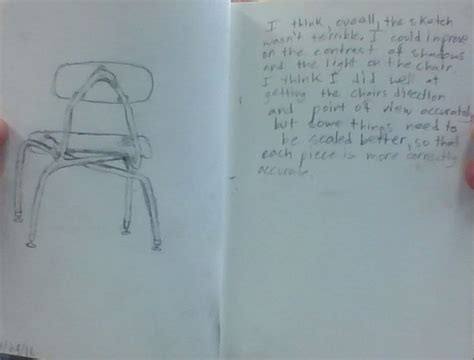 I think, overall, the sketch
wasn't terrible. I could improve
on the contrast of shadows
and the light on the chair.
I think I did well at
getting the chairs direction
and point of view accurate,
but some things need to
be scaled better, so that
each piece is more correctly
accurate.